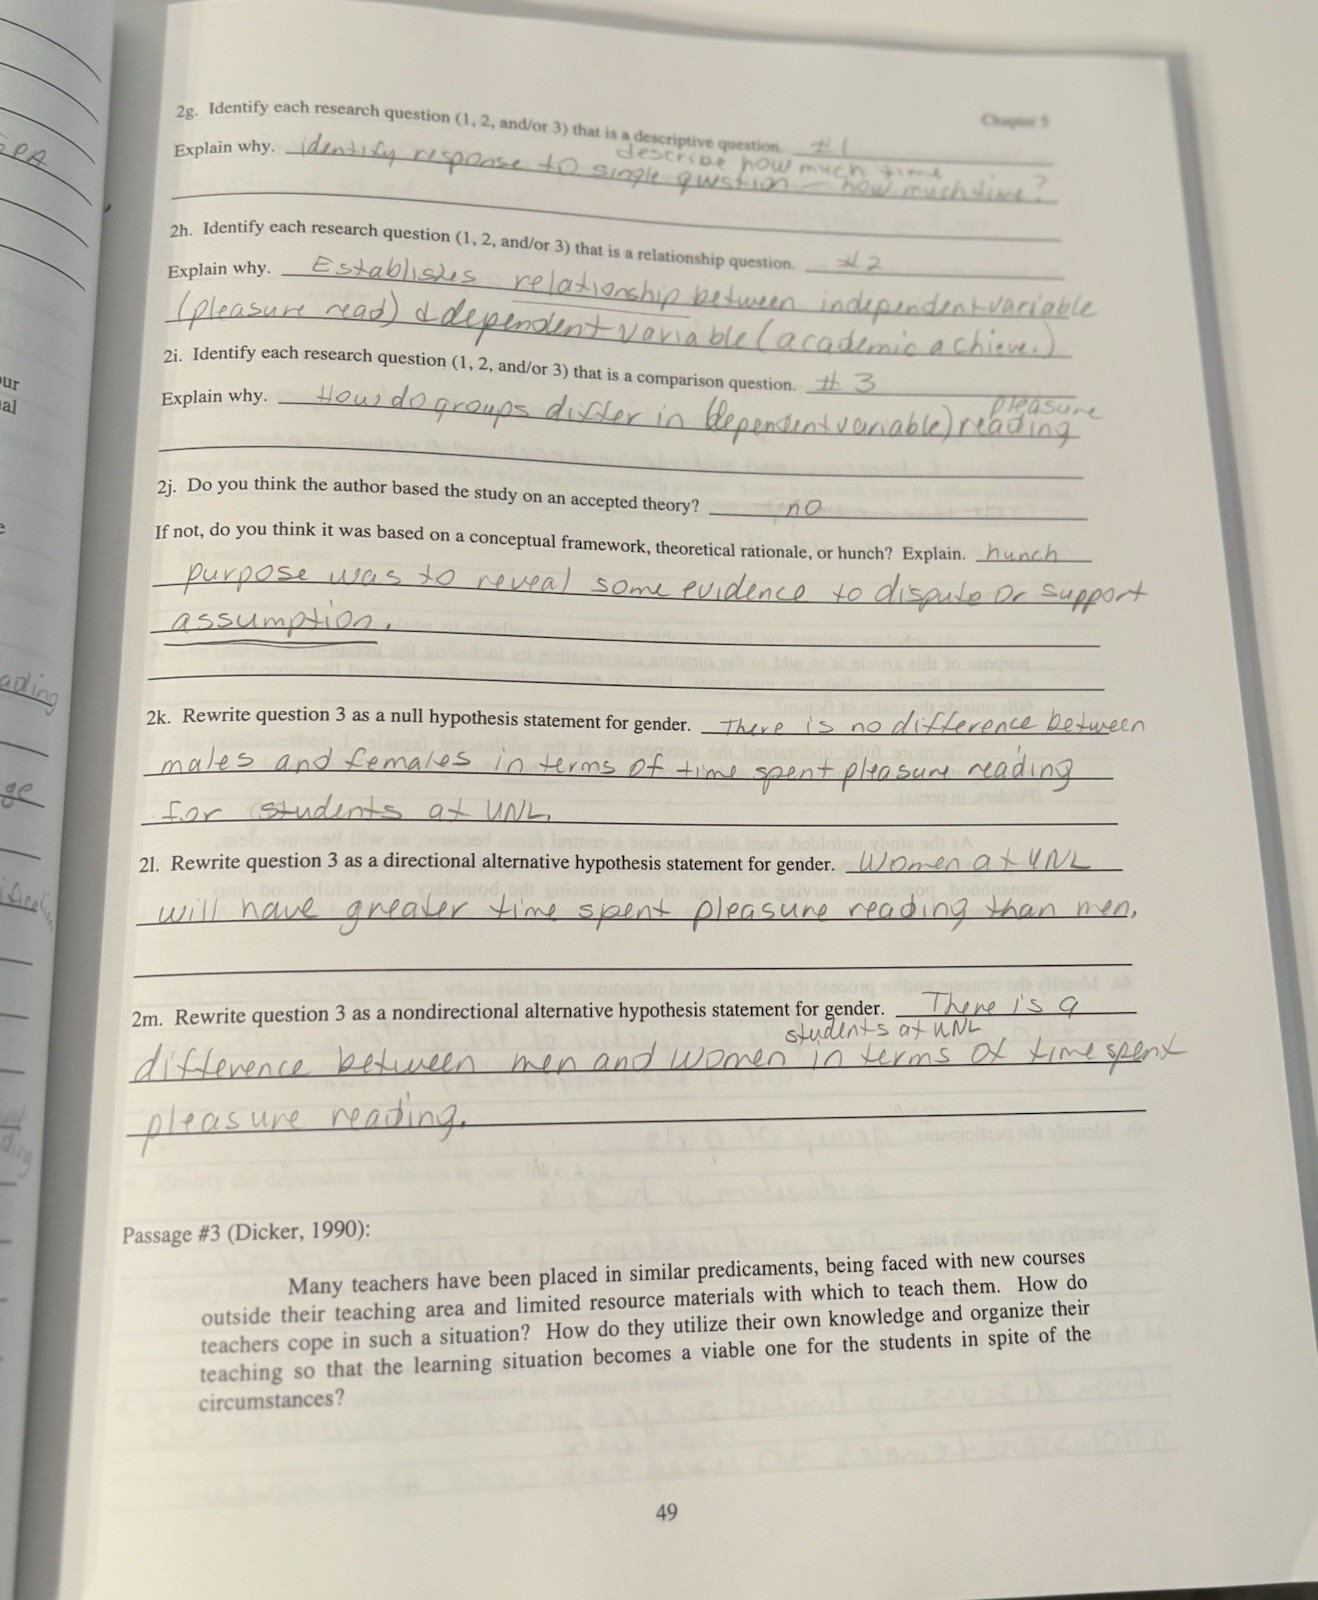 Chapter 5
2g. Identify each research question (1, 2, and/or 3) that is a descriptive question. #1
describe how much time
Explain why. identify response to single qustion – how much time?
2h. Identify each research question (1, 2, and/or 3) that is a relationship question. #2
Explain why. Establishes relationship between independent variable
(pleasure read) & dependent variable (academic achieve.)
2i. Identify each research question (1, 2, and/or 3) that is a comparison question. #3
pleasure
Explain why. How do groups differ in (dependent variable) reading
2j. Do you think the author based the study on an accepted theory? no
If not, do you think it was based on a conceptual framework, theoretical rationale, or hunch? Explain. hunch
purpose was to reveal some evidence to dispute or support
assumption.
2k. Rewrite question 3 as a null hypothesis statement for gender. There is no difference between
males and females in terms of time spent pleasure reading
for students at UNL.
2l. Rewrite question 3 as a directional alternative hypothesis statement for gender. Women at UNL
will have greater time spent pleasure reading than men.
2m. Rewrite question 3 as a nondirectional alternative hypothesis statement for gender. There is a
students at UNL
difference between men and women in terms of time spent
pleasure reading.
Passage #3 (Dicker, 1990):
Many teachers have been placed in similar predicaments, being faced with new courses
outside their teaching area and limited resource materials with which to teach them. How do
teachers cope in such a situation? How do they utilize their own knowledge and organize their
teaching so that the learning situation becomes a viable one for the students in spite of the
circumstances?
49